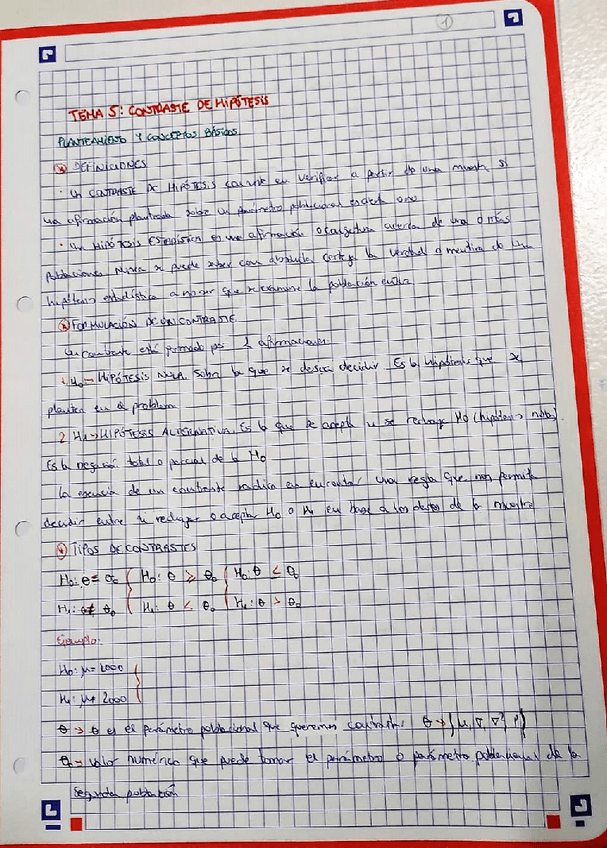 1
TEMA 5: CONTRASTE DE HIPÓTESIS
PLANTEAMIENTO Y CONCEPTOS BÁSICOS
DEFINICIONES
· UN CONTRASTE DE HIPÓTESIS consiste en verificar a partir de una muestra si
una afirmación planteada sobre un parámetro poblacional es cierta o no
· UN HIPÓTESIS ESTADÍSTICA es una afirmación o conjetura acerca de una o más
poblaciones. Nunca se puede saber con absoluta certeza la verdad o mentira de una
hipótesis estadística a no ser que se examine la población entera
FORMULACIÓN DE UN CONTRASTE
Un contraste está formado por 2 afirmaciones
1. H0 → HIPÓTESIS NULA Sobre la que se desea decidir. Es la hipótesis que se
plantea en el problema
2. H1 → HIPÓTESIS ALTERNATIVA. Es la que se acepta si se rechaza H0 (hipótesis nula).
Es la negación total o parcial de la H0
La esencia de un contraste radica en encontrar una regla que nos permita
decidir entre si rechazar o aceptar H0 o H1 en base a los datos de la muestra
TIPOS DE CONTRASTES
H0: θ = θ0 { H0: θ ≥ θ0 { H0: θ ≤ θ0
H1: θ ≠ θ0 { H1: θ < θ0 { H1: θ > θ0
Ejemplo:
H0: μ = 2000
H1: μ ≠ 2000
θ → θ es el parámetro poblacional que queremos contrastar. θ → {μ, σ, σ², p}
θ0 → valor numérico que puede tomar el parámetro o parámetro poblacional de la
segunda población